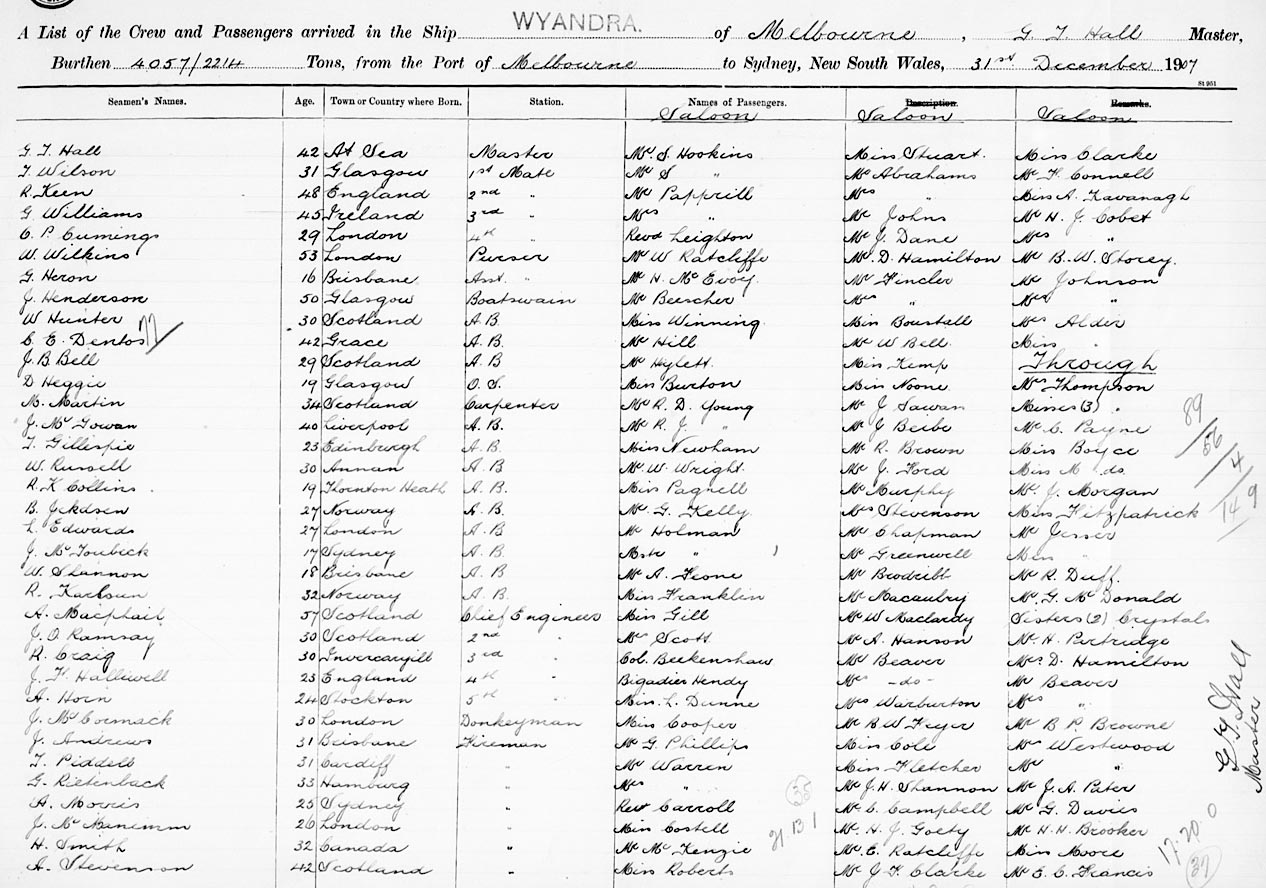 WYANDRA.
A List of the Crew and Passengers arrived in the Ship of Melbourne, G. T. Hall Master,
Burthen 4057/2214 Tons, from the Port of Melbourne to Sydney, New South Wales, 31st December 1907
S1 951
Seamen's Names. Age. Town or Country where Born. Station. Names of Passengers. Description. Remarks.
Saloon Saloon Saloon
G. T. Hall 42 At Sea Master Mr. S. Hookins Miss Stuart. Miss Clarke
T. Wilson 31 Glasgow 1st Mate Mr S " Mr Abrahams Mr F. Connell
R. Keen 48 England 2nd " Mr Papprill Mrs " Miss A. Kavanagh
G. Williams 45 Ireland 3rd " Mrs " Mr Johns Mr H. J. Cobet
C. P. Cumings 29 London 4th " Revd Leighton Mr J. Dane Mrs "
W. Wilkins 53 London Purser Mr W Ratcliffe Mr. D. Hamilton Mr B. W. Storey.
G. Heron 16 Brisbane Asst. " Mr H. McEvoy. Mr Fincler Mr Johnson
J. Henderson 50 Glasgow Boatswain Mr Beescher Mrs " Mrs "
W Hunter 30 Scotland A.B. Miss Winning. Miss Boustall Mrs Alder
C. E. Dentos 77 42 Grace A.B. Mr Hill Mr W Bell. Miss "
J. B. Bell 29 Scotland A.B Mr Hylett. Miss Kemp Through
D Heggie 19 Glasgow O.S. Miss Burton Miss Noone. Mrs Thompson
M. Martin 34 Scotland Carpenter Mr R. D. Young Mr J Sawan Misses (3) "
J. McGowan 40 Liverpool A.B. Mr R. J. " Mr J Beibe Mr C. Payne 89
T. Gillespie 23 Edinburgh A.B. Miss Newham Mr R. Brown Miss Boyce 56
W. Russell 30 Annan A.B Mr W. Wright. Mr J. Ford Miss M do 4
R. K Collins 19 Thornton Heath A.B. Miss Pagnell Mr Murphy Mr. J. Morgan 149
B. Jckdsen 27 Norway A.B. Mr. G. Kelly. Mrs Stevenson Miss Fitzpatrick
L. Edwards 27 London A.B. Mr Holman Mr Chapman Mr Jesser
J. McToubeck 17 Sydney A.B. Mstr " Mr Greenwell Miss "
W. Shannon 18 Brisbane A.B Mr A. Feone Mr Brodribb Mr R. Duff.
R. Karlsun 32 Norway A.B. Miss Franklin Mr Macaubry Mr. G. McDonald
A. Macphail 57 Scotland Chief Engineer Miss Gill Mr W Maclardy Sisters (2) Crystal
J. O. Ramsay 30 Scotland 2nd " Mr Scott Mr A. Hanson Mr H. Partridge
R. Craig 30 Invercargill 3rd " Col. Beekenshaw Mr Beaver Mrs. D. Hamilton
J. F. Halliwell 25 England 4th " Bigadier Hendy Mrs - do - Mr Beaver
A. Horn 24 Stockton 5th " Miss. L. Dunne Mrs Warburton Mrs "
J. McCormack 30 London Donkeyman Miss Cooper Mr R. W. Feyer Mr B. P. Browne
J. Andrews 31 Brisbane Fireman Mr G. Phillips Miss Cole Mrs Westwood
T. Piddell 31 Cardiff " Mr Warren Miss Fletcher Mr "
G. Rietenback 33 Hamburg " Mrs " Mr J. H. Shannon Mr J. A. Pater
A. Morris 25 Sydney " Rev Carroll Mr C. Campbell Mr G. Davies
J. McManimm 26 London " Miss Costell Mr. H. J. Goety Mr H. H. Brooker
H. Smith 32 Canada " Mr McKenzie Mr. E. Ratcliffe Miss Moore
A. Stevenson 42 Scotland " Miss Roberts Mr J. F. Clarke Mr E. C. Francis
35
21. 13 1
17. 20. 0
37
G. T. Hall
Master